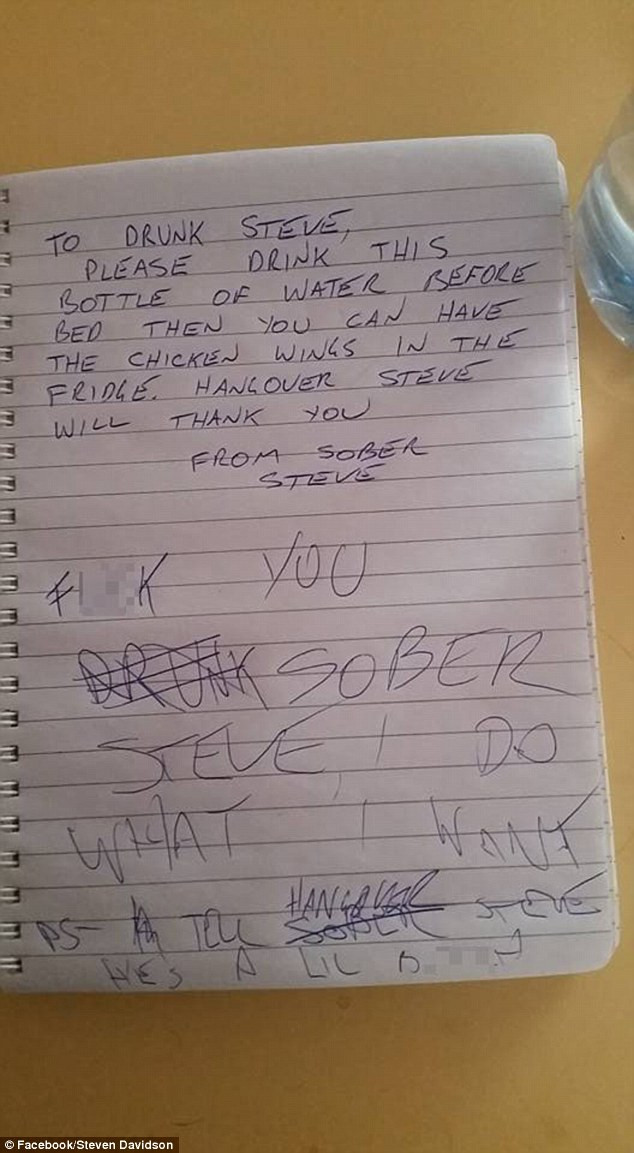 TO DRUNK STEVE,
PLEASE DRINK THIS
BOTTLE OF WATER BEFORE
BED THEN YOU CAN HAVE
THE CHICKEN WINGS IN THE
FRIDGE. HANGOVER STEVE
WILL THANK YOU
FROM SOBER
STEVE
F K YOU
DRUNK SOBER
STEVE, I DO
WHAT I WANT
HANGOVER
PS- TELL SOBER STEVE
HES A LIL B H
© Facebook/Steven Davidson